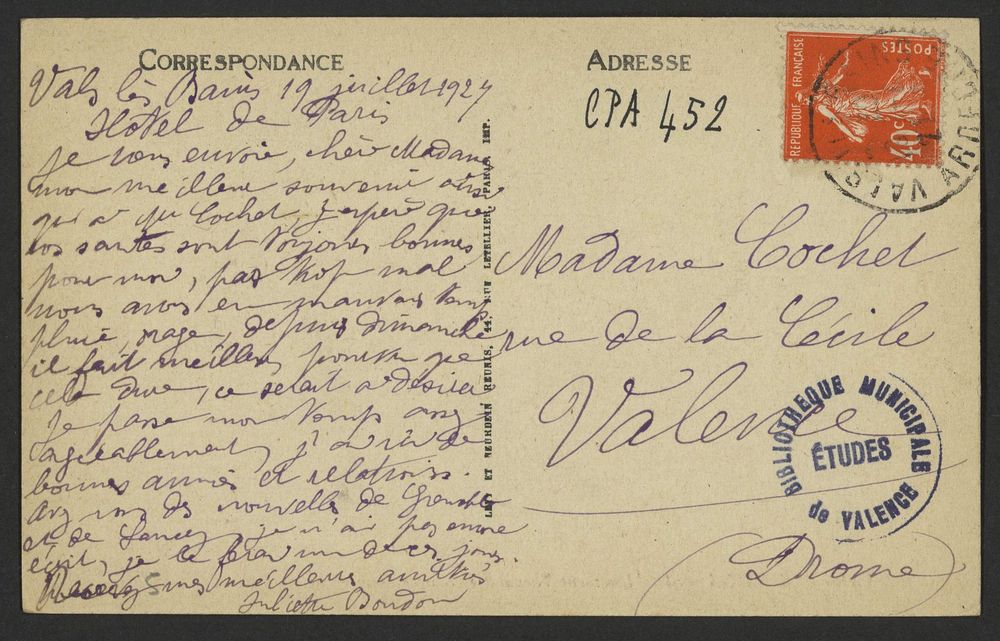 CORRESPONDANCE
Vals les Bains 19 juillet 1927
Hôtel de Paris
Je vous envoie, chère Madame
mon meilleur souvenir ainsi
qu'a Mr Cochet, j'espère que
vos santés sont toujours bonnes
pour moi, pas trop mal
nous avons eu mauvais temps
pluie, orage, depuis dimanche
il fait meilleur, pourvu que
cela dure, ce serait a désirer
Je passe mon temps assez
agréablement, j'ai ici de
bonnes amies et relations.
avez vous des nouvelles de Grenoble
et de Lancey, je n'ai pas encore
écrit, je le ferai un de ces jours.
Recevez mes meilleures amitiés
Juliette Boudon
LEVY ET NEURDEIN RÉUNIS, 44, RUE LETELLIER, PARIS IMP.
ADRESSE
CPA 452
RÉPUBLIQUE FRANÇAISE
POSTES
40 c
VALS
ARDECHE
Madame Cochet
rue de la Cécile
Valence
Drome
BIBLIOTHEQUE MUNICIPALE
ÉTUDES
de VALENCE